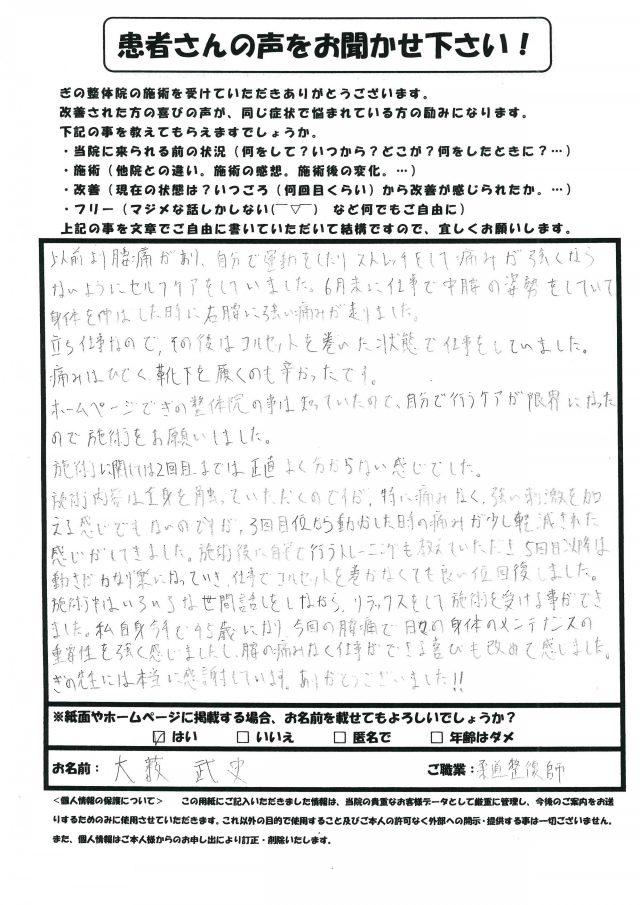 患者さんの声をお聞かせ下さい！
ぎの整体院の施術を受けていただきありがとうございます。
改善された方の喜びの声が、同じ症状で悩まれている方の励みになります。
下記の事を教えてもらえますでしょうか。
・当院に来られる前の状況（何をして？いつから？どこが？何をしたときに？…）
・施術（他院との違い。施術の感想。施術後の変化。…）
・改善（現在の状態は？いつごろ（何回目くらい）から改善が感じられたか。…）
・フリー（マジメな話しかしない(￣▽￣)　など何でもご自由に）
上記の事を文章でご自由に書いていただいて結構ですので、宜しくお願いします。
以前より腰痛があり、自分で運動をしたりストレッチをして痛みが強くなら
ないようにセルフケアをしていました。6月末に仕事で中腰の姿勢をしていて
身体を伸ばした時に右腰に強い痛みが走りました。
立ち仕事なので、その後はコルセットを巻いた状態で仕事をしていました。
痛みはひどく、靴下を履くのも辛かったです。
ホームページでぎの整体院の事は知っていたので、自分で行うケアが限界になった
ので施術をお願いしました。
施術に関しては2回目までは正直よく分からない感じでした。
施術内容は全身を触っていただくのですが、特に痛みなく、強い刺激を加
える感じでもないのですが、3回目位から動かした時の痛みが少し軽減された
感じがしてきました。施術後に自宅で行うトレーニングも教えていただき5回目以降は
動きがかなり楽になっていき、仕事でコルセットを巻かなくても良い位回復しました。
施術中はいろいろな世間話をしながら、リラックスをして施術を受ける事ができ
ました。私自身今年で45歳になり、今回の腰痛で日々の身体のメンテナンスの
重要性を強く感じましたし、腰の痛みなく仕事ができる喜びも改めて感じました。
ぎの先生には本当に感謝しています。ありがとうございました!!
※紙面やホームページに掲載する場合、お名前を載せてもよろしいでしょうか？
☑ はい　□ いいえ　□ 匿名で　□ 年齢はダメ
お名前： 大薮 武史　ご職業： 柔道整復師
＜個人情報の保護について＞　この用紙にご記入いただきました情報は、当院の貴重なお客様データとして厳重に管理し、今後のご案内をお送
りするためのみに使用させていただきます。これ以外の目的で使用すること及びご本人の許可なく外部への開示・提供する事は一切ございません。
また、個人情報はご本人様からのお申し出により訂正・削除いたします。